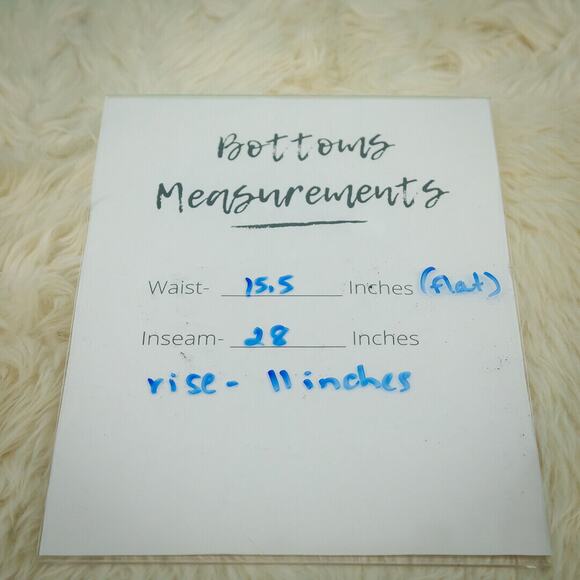 Bottoms
Measurements
Waist- 15.5 Inches (flat)
Inseam- 28 Inches
rise- 11 inches